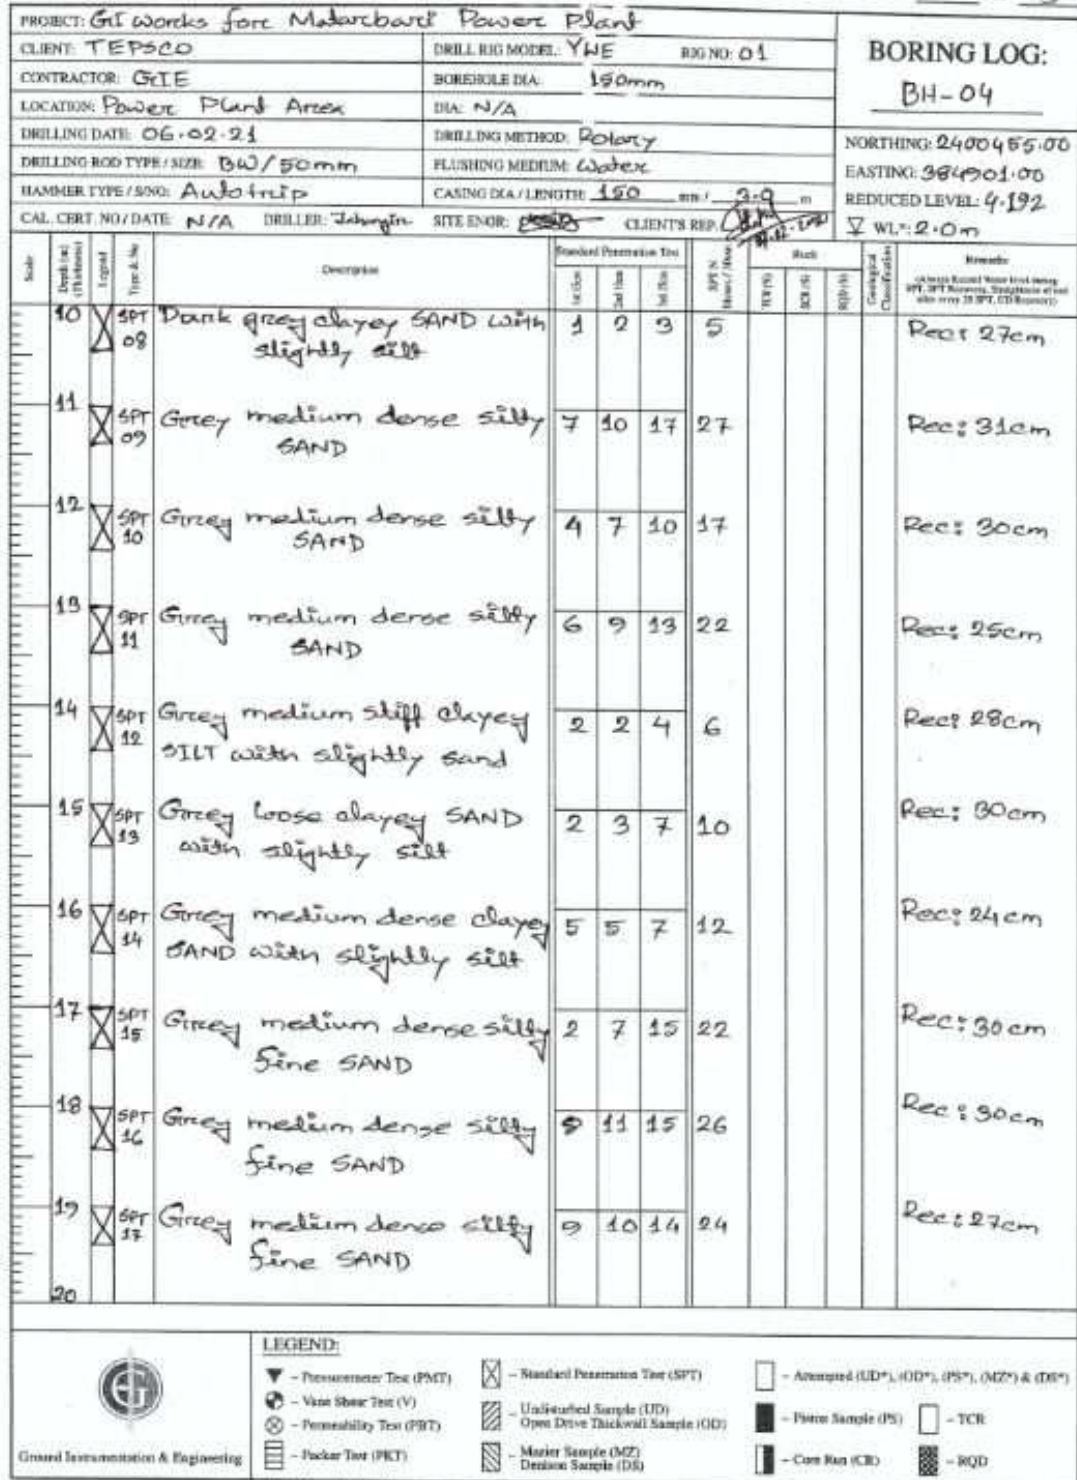 PROJECT: GI works forc Matarcbari Powerc Plant
CLIENT: TEPSCO DRILL RIG MODEL: YWE RIG NO: 01
BORING LOG:
BH-04
CONTRACTOR: GIE BOREHOLE DIA: 150mm
LOCATION: Power Plant Area DIA: N/A
DRILLING DATE: 06.02.21 DRILLING METHOD: Rotary
NORTHING: 2400455.00
DRILLING ROD TYPE / SIZE: BW/50mm FLUSHING MEDIUM: Water
EASTING: 384901.00
HAMMER TYPE / S/NO: Autotrip CASING DIA / LENGTH: 150 mm / 3.0 m
REDUCED LEVEL: 4.192
CAL. CERT. NO / DATE: N/A DRILLER: Jahangir SITE ENGR: CLIENT'S REP.
WL*: 2.0m
Scale Depth (m) (Thickness) Legend Type & No Description Standard Penetration Test 1st 15cm 2nd 15cm 3rd 15cm SPT N Rock TCR (%) SCR (%) RQD (%) Geological Classification Remarks
10 SPT 08 Dark grey clayey SAND with slightly silt 1 2 3 5 Rec: 27cm
11 SPT 09 Grey medium dense silty SAND 7 10 17 27 Rec: 31cm
12 SPT 10 Grey medium dense silty SAND 4 7 10 17 Rec: 30cm
13 SPT 11 Grey medium dense silty SAND 6 9 13 22 Rec: 25cm
14 SPT 12 Grey medium stiff clayey SILT with slightly sand 2 2 4 6 Rec: 28cm
15 SPT 13 Grey loose clayey SAND with slightly silt 2 3 7 10 Rec: 30cm
16 SPT 14 Grey medium dense clayey SAND with slightly silt 5 5 7 12 Rec: 24cm
17 SPT 15 Grey medium dense silty fine SAND 2 7 15 22 Rec: 30cm
18 SPT 16 Grey medium dense silty fine SAND 11 15 26 Rec: 30cm
19 SPT 17 Grey medium dense silty fine SAND 9 10 14 24 Rec: 27cm
20
LEGEND:
– Pressuremeter Test (PMT)
– Vane Shear Test (V)
– Permeability Test (PBT)
– Packer Test (PKT)
– Standard Penetration Test (SPT)
– Undisturbed Sample (UD)
Open Drive Thickwall Sample (OD)
– Mazier Sample (MZ)
Denison Sample (DS)
– Attempted (UD*), (OD*), (PS*), (MZ*) & (DS*)
– Piston Sample (PS) – TCR
– Core Run (CR) – RQD
Ground Instrumentation & Engineering